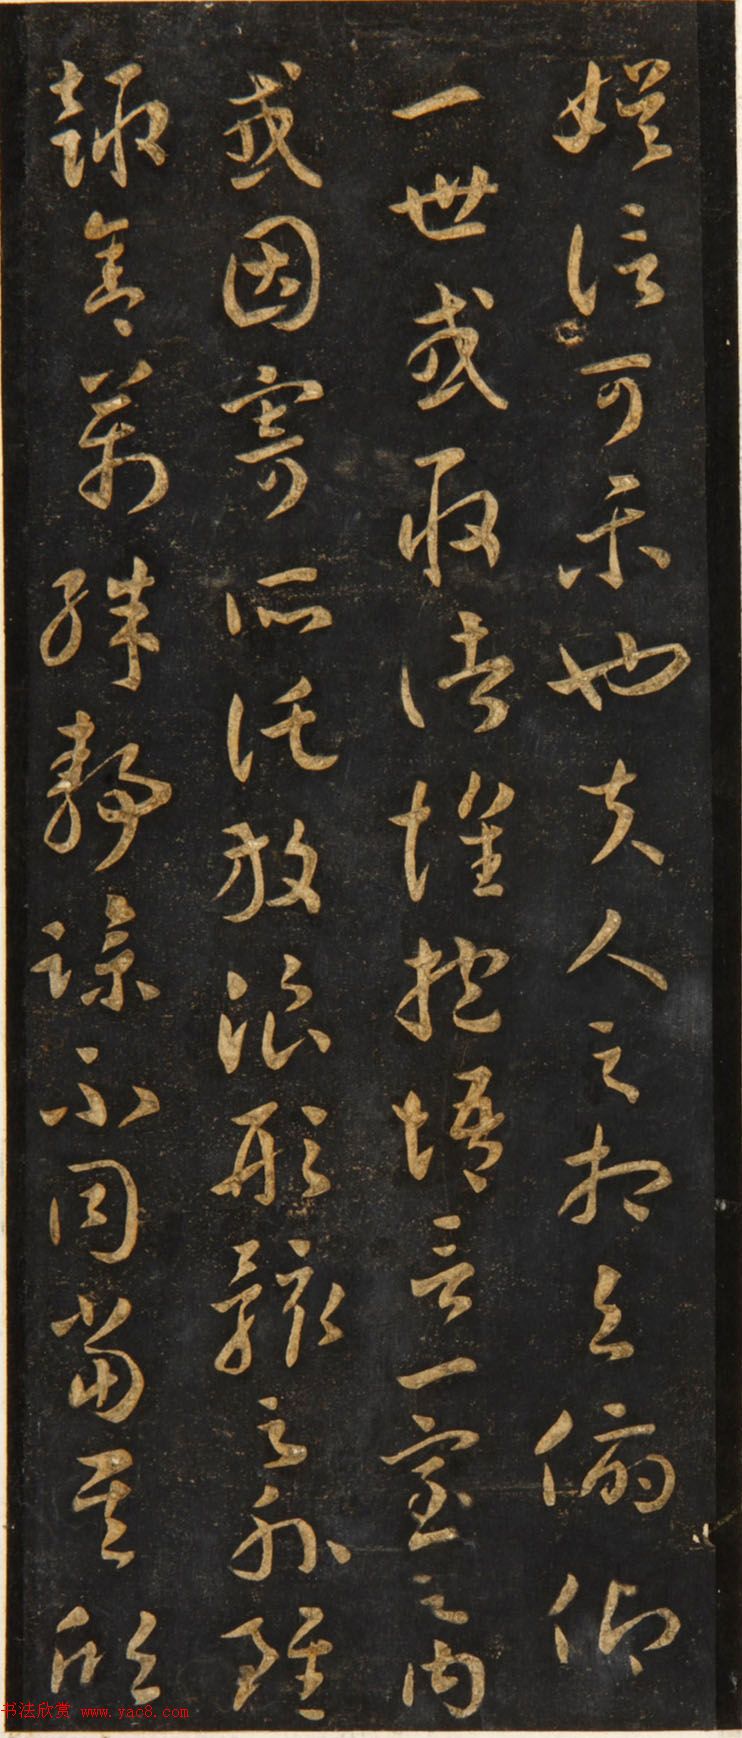 娛信可樂也夫人之相與俯仰
一世或取諸懷抱悟言一室之内
或因寄所託放浪形骸之外雖
趣舍萬殊靜躁不同當其欣
书法欣赏 www.yac8.com